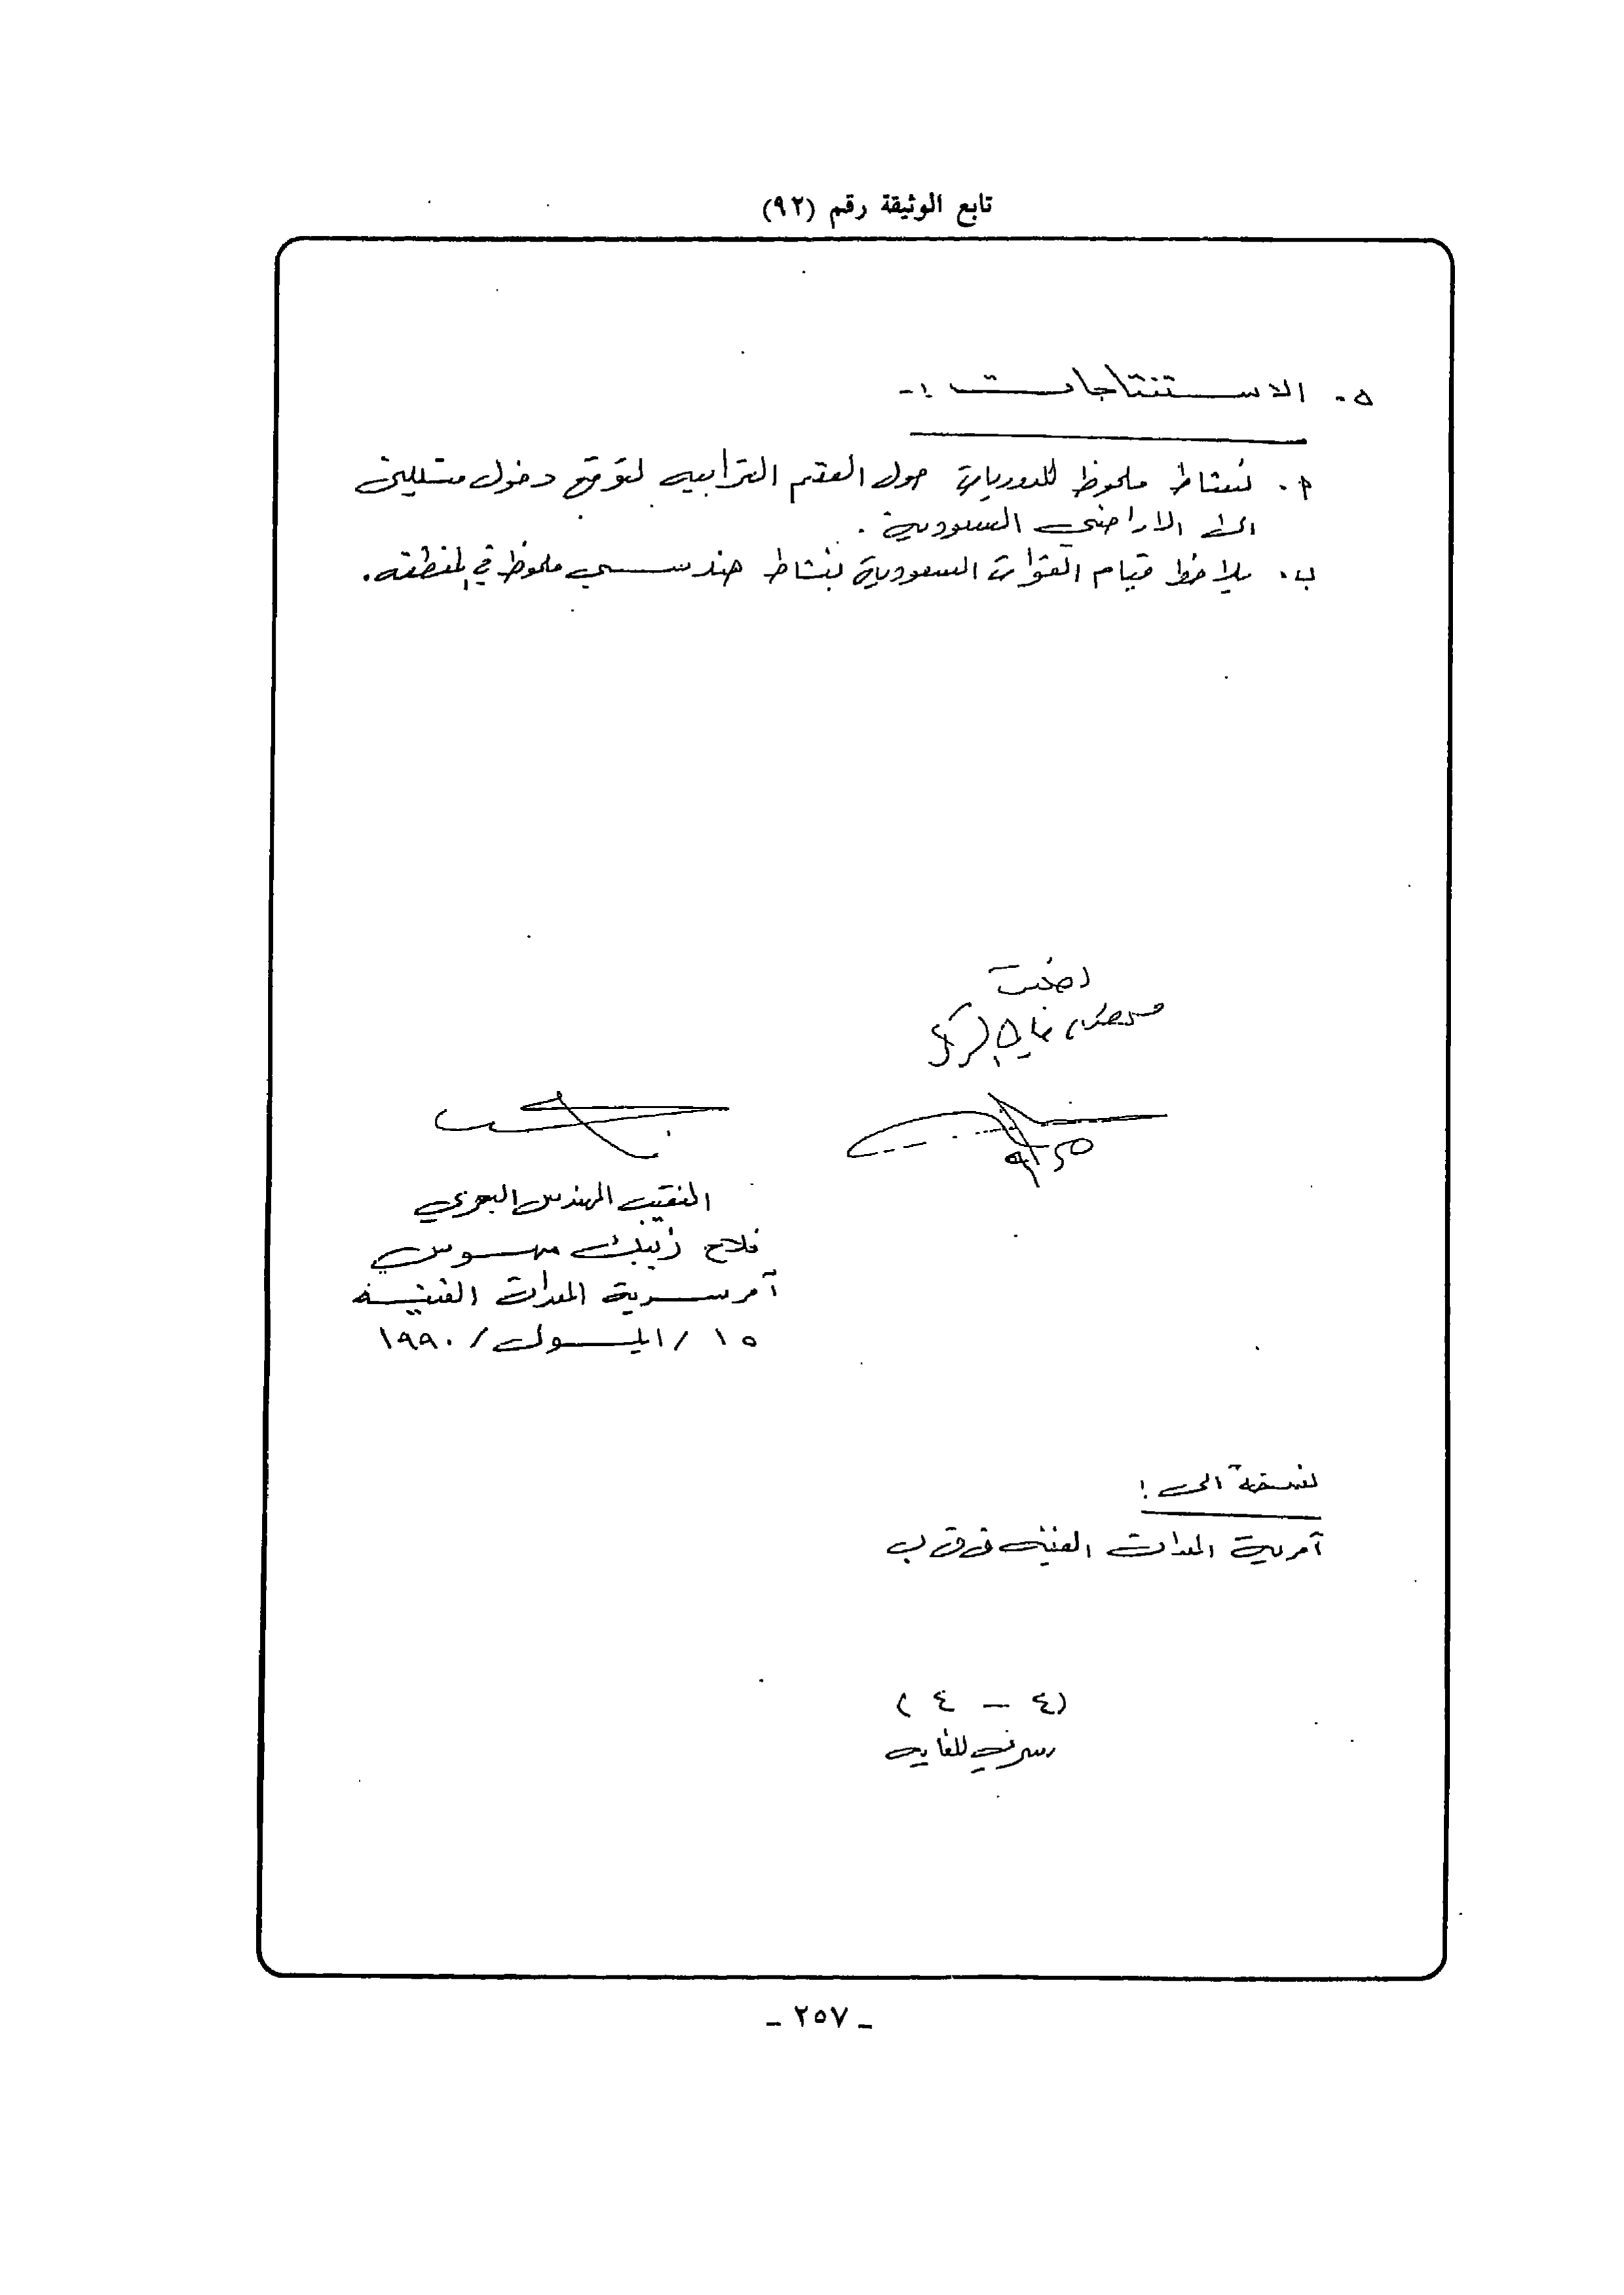 تابع الوثيقة رقم (٩٢)
٥. الاستنتاجات :-
أ. نشاط ملحوظ للدوريات حول العقم الترابيه لتوقع دخول متسللين
الى الاراضي السعودية .
ب. يلاحظ قيام القوات السعودية بنشاط هندسي ملحوظ في المنطقه.
النقيب المهندس البحري
فلاح زنبك مهوس
آمر سرية المعدات الفنيه
١٥ / ايلول / ١٩٩٠
نسخة الى :
آمرية المعدات الفنيه
(٤ - ٤)
سري للغايه
- ٢٥٧ -